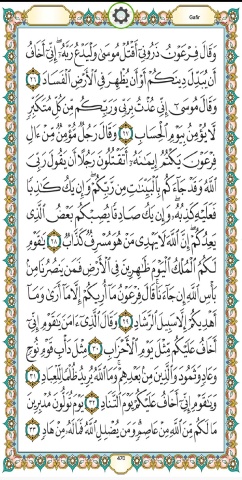 Gafir
وَقَالَ فِرْعَوْنُ ذَرُونِىٓ أَقْتُلْ مُوسَىٰ وَلْيَدْعُ رَبَّهُۥٓ إِنِّىٓ أَخَافُ
أَن يُبَدِّلَ دِينَكُمْ أَوْ أَن يُظْهِرَ فِى ٱلْأَرْضِ ٱلْفَسَادَ ٢٦
وَقَالَ مُوسَىٰٓ إِنِّى عُذْتُ بِرَبِّى وَرَبِّكُم مِّن كُلِّ مُتَكَبِّرٍ
لَّا يُؤْمِنُ بِيَوْمِ ٱلْحِسَابِ ٢٧ وَقَالَ رَجُلٌ مُّؤْمِنٌ مِّنْ ءَالِ
فِرْعَوْنَ يَكْتُمُ إِيمَٰنَهُۥٓ أَتَقْتُلُونَ رَجُلًا أَن يَقُولَ رَبِّىَ
ٱللَّهُ وَقَدْ جَآءَكُم بِٱلْبَيِّنَٰتِ مِن رَّبِّكُمْ وَإِن يَكُ كَٰذِبًا
فَعَلَيْهِ كَذِبُهُۥ وَإِن يَكُ صَادِقًا يُصِبْكُم بَعْضُ ٱلَّذِى
يَعِدُكُمْ إِنَّ ٱللَّهَ لَا يَهْدِى مَنْ هُوَ مُسْرِفٌ كَذَّابٌ ٢٨ يَٰقَوْمِ
لَكُمُ ٱلْمُلْكُ ٱلْيَوْمَ ظَٰهِرِينَ فِى ٱلْأَرْضِ فَمَن يَنصُرُنَا مِنۢ
بَأْسِ ٱللَّهِ إِن جَآءَنَا قَالَ فِرْعَوْنُ مَآ أُرِيكُمْ إِلَّا مَآ أَرَىٰ وَمَآ
أَهْدِيكُمْ إِلَّا سَبِيلَ ٱلرَّشَادِ ٢٩ وَقَالَ ٱلَّذِىٓ ءَامَنَ يَٰقَوْمِ إِنِّىٓ
أَخَافُ عَلَيْكُم مِّثْلَ يَوْمِ ٱلْأَحْزَابِ ٣٠ مِثْلَ دَأْبِ قَوْمِ نُوحٍ
وَعَادٍ وَثَمُودَ وَٱلَّذِينَ مِنۢ بَعْدِهِمْ وَمَا ٱللَّهُ يُرِيدُ ظُلْمًا لِّلْعِبَادِ ٣١
وَيَٰقَوْمِ إِنِّىٓ أَخَافُ عَلَيْكُمْ يَوْمَ ٱلتَّنَادِ ٣٢ يَوْمَ تُوَلُّونَ مُدْبِرِينَ
مَا لَكُم مِّنَ ٱللَّهِ مِنْ عَاصِمٍ وَمَن يُضْلِلِ ٱللَّهُ فَمَا لَهُۥ مِنْ هَادٍ ٣٣
470